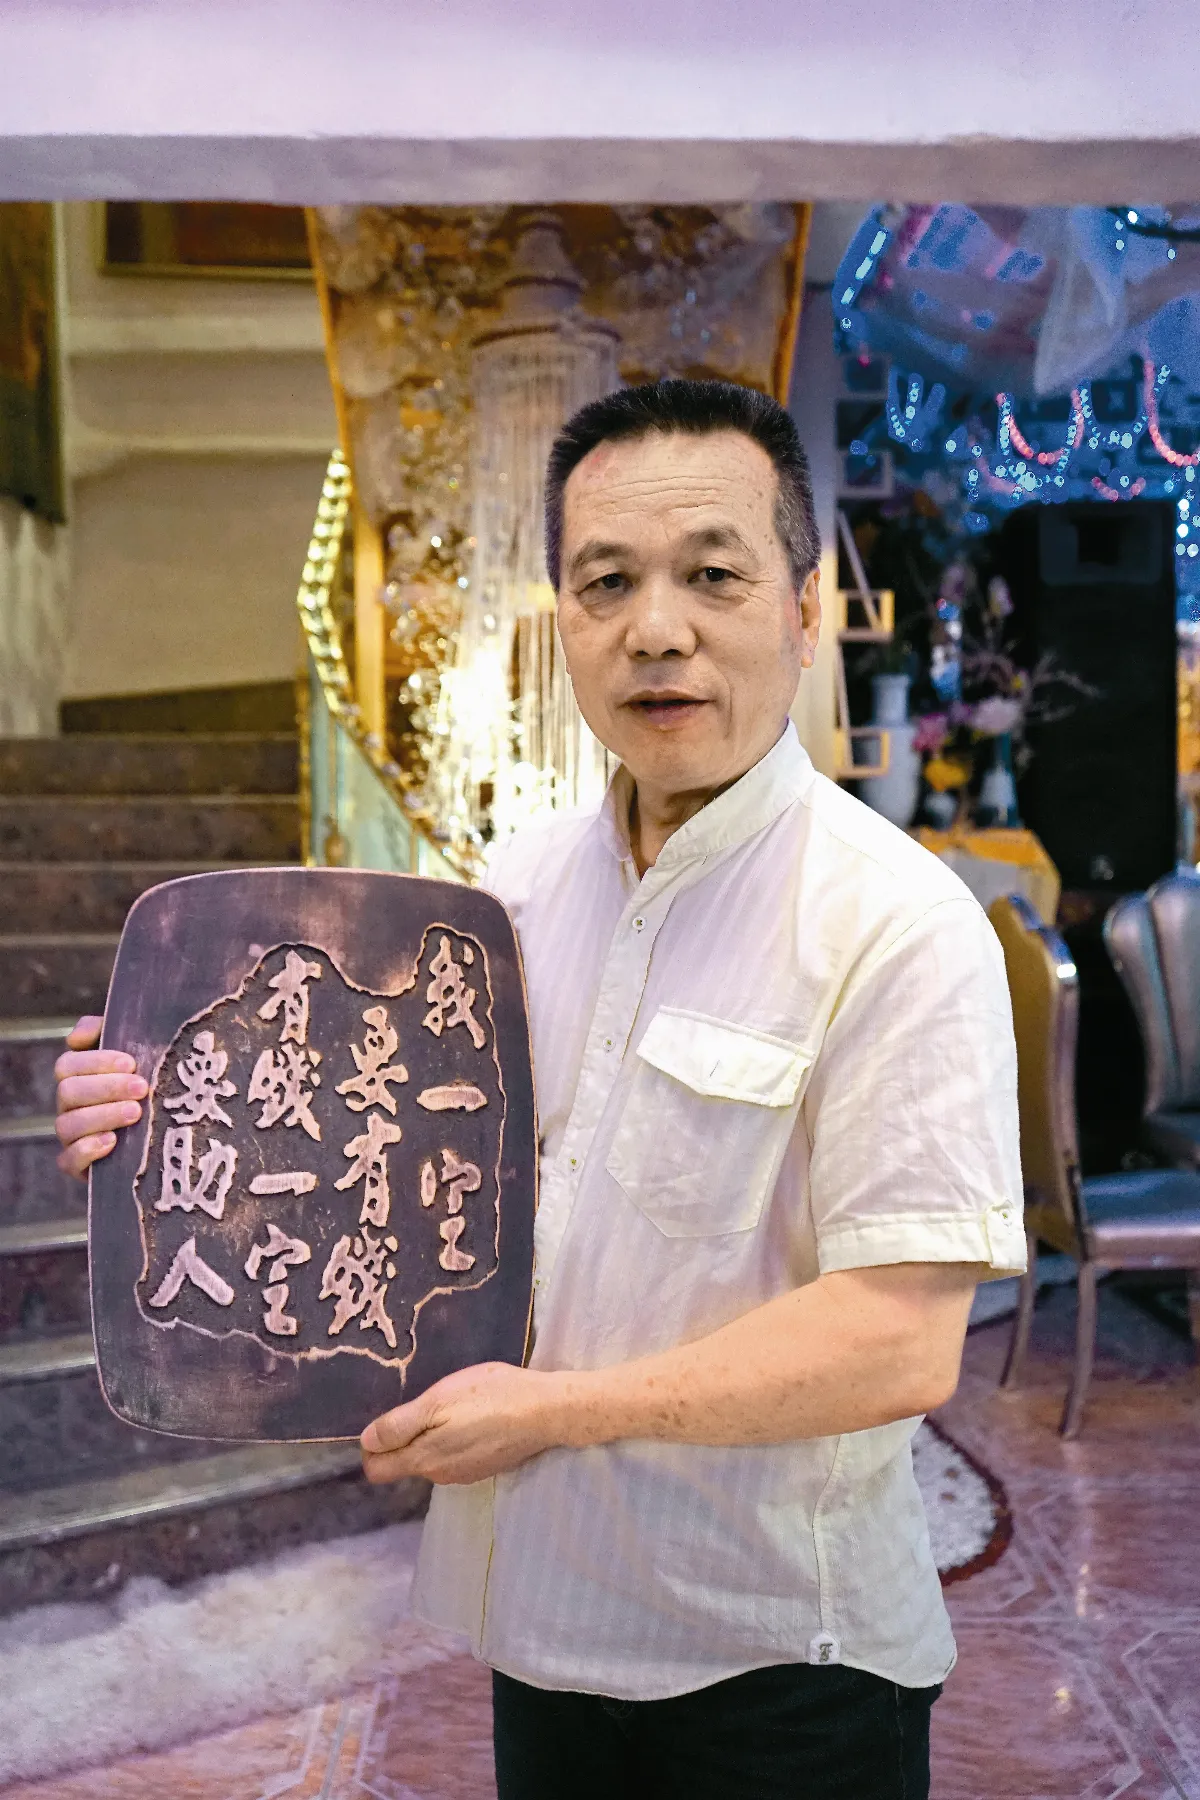 我一定
要有錢
有錢一定
要助人
F